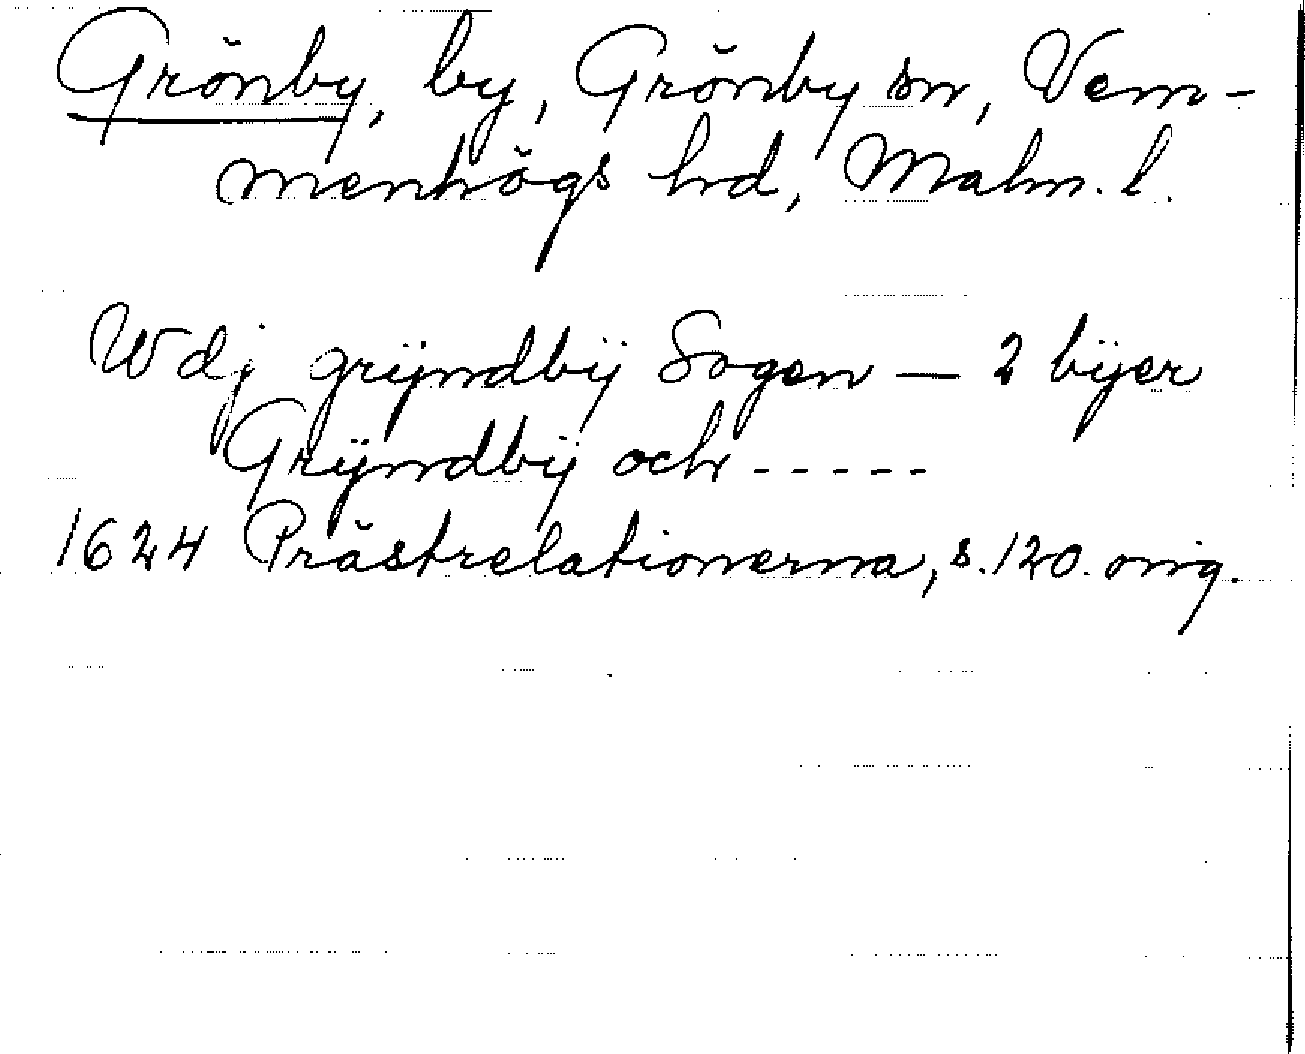 Grönby, by, Grönby sn, Vem-
menhögs hrd, Malm. l.
Wdj grÿndbÿ Sogen — 2 bÿer
Grÿndbÿ och - - - - -
1624 Prästrelationerna, s. 120. orig.